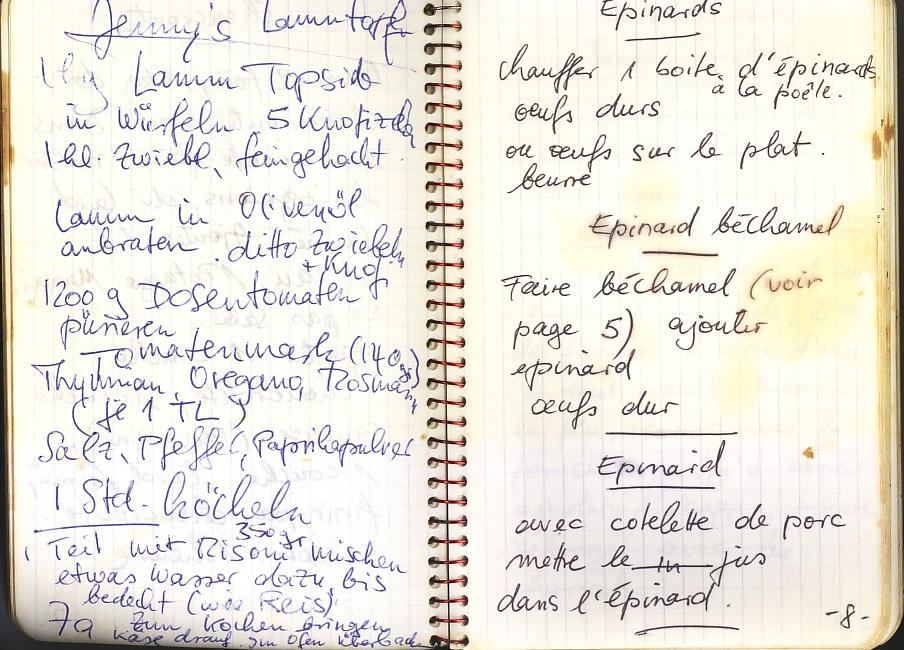 Jenny's Lammtopf
1 kg Lamm Topside
in Würfeln 5 Knofizeh
1 kl. Zwiebl, feingehackt
Lamm in Olivenöl
anbraten. ditto Zwiebeln
+ Knof
1200 g Dosentomaten
pürieren
Tomatenmark (140 gr)
Thythmian, Oregano, Rosmarin
(je 1 TL)
Salz, Pfeffer, Paprikapulver
1 Std. köcheln
350 gr
1 Teil mit Risoni mischen
etwas Wasser dazu, bis
bedeckt (wie Reis)
7a zum kochen bringen
Käse drauf. im Ofen überbacken
Epinards
chauffer 1 boite d'épinards
à la poêle.
œufs durs
ou œufs sur le plat.
beurre
Epinard béchamel
Faire béchamel (voir
page 5) ajouter
epinard
œufs dur
Epinard
avec cotelette de porc
mettre le jus
dans l'épinard.
-8-